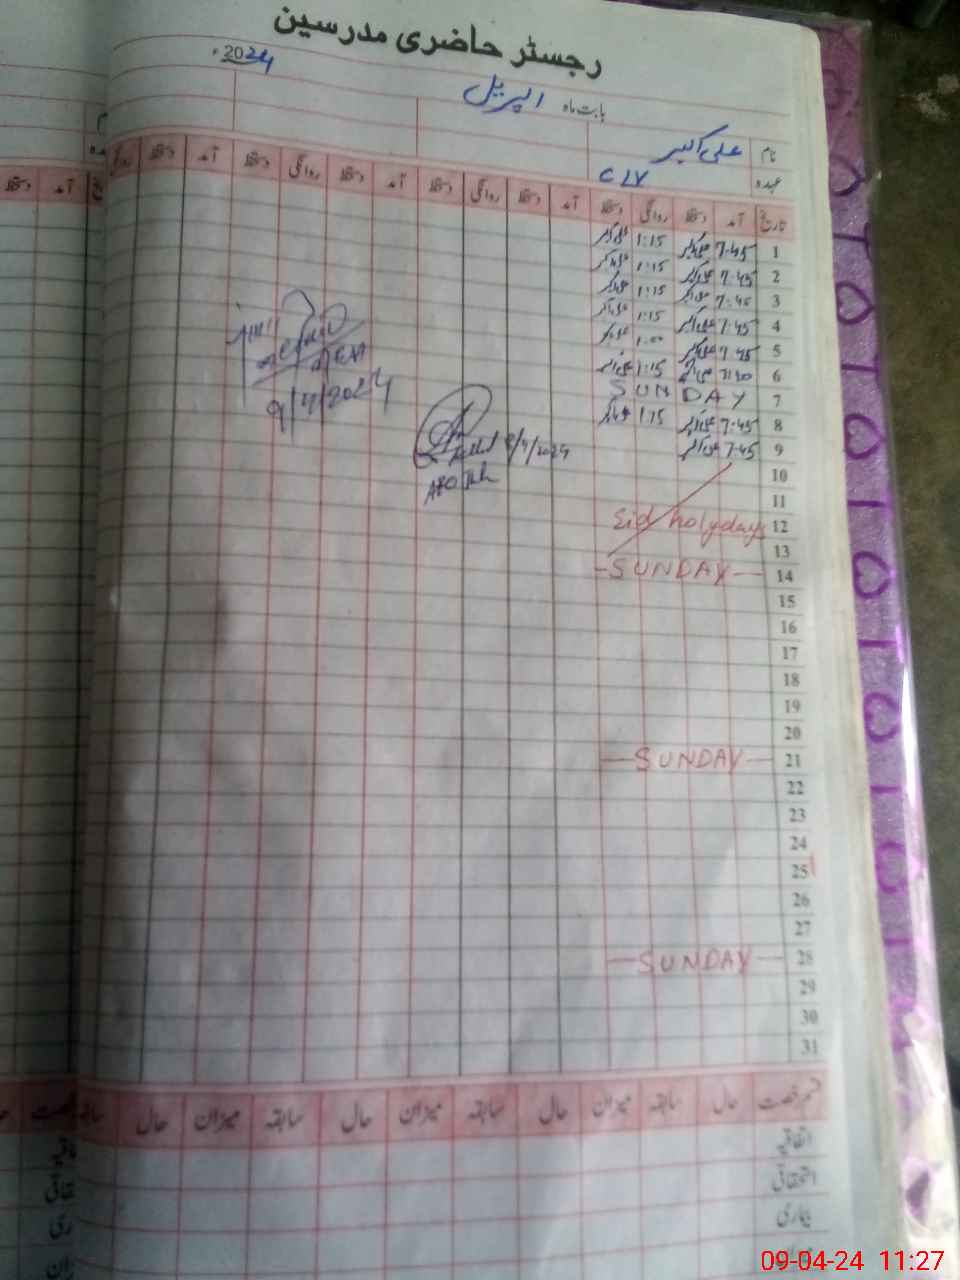 رجسٹر حاضری مدرسین
بابت ماہ اپریل 2024ء
نام علی اکبر
عہدہ C I V
تاریخ آمد دستخط روانگی دستخط آمد دستخط روانگی دستخط آمد دستخط روانگی دستخط آمد دستخط روانگی
1 7:45 علی اکبر 1:15 علی اکبر
2 7:45 علی اکبر 1:15 علی اکبر
3 7:45 علی اکبر 1:15 علی اکبر
4 7:45 علی اکبر 1:15 علی اکبر
5 7:45 علی اکبر 1:00 علی اکبر
6 علی اکبر 1:15 علی اکبر
7 SUNDAY
8 7:45 علی اکبر 1:15 علی اکبر
9 7:45 علی اکبر
9/4/2024
8/4/2024
10
11
12 Eid holydays
13
14 SUNDAY
15
16
17
18
19
20
21 SUNDAY
22
23
24
25
26
27
28 SUNDAY
29
30
31
قسم رخصت حال سابقہ میزان حال سابقہ میزان حال سابقہ میزان حال سابقہ
اتفاقیہ
استحقاقی
بیماری
09-04-24 11:27